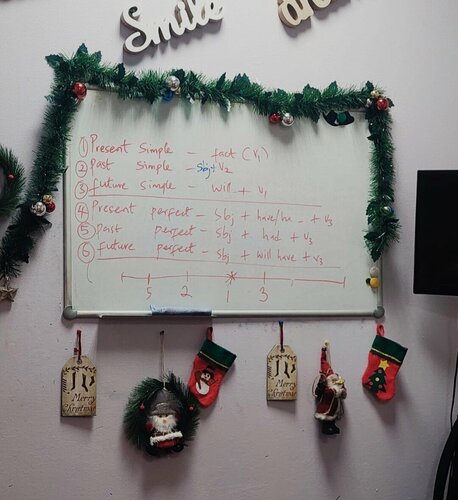 Smile
and
① Present Simple – fact (V1)
② Past Simple – Sbj + V2
③ future Simple – will + V1
④ Present perfect – Sbj + have/ha – + V3
⑤ Past perfect – Sbj + had + V3
⑥ future perfect – Sbj + will have + V3
5 2 1 3
Merry
Christmas
Merry
Christmas